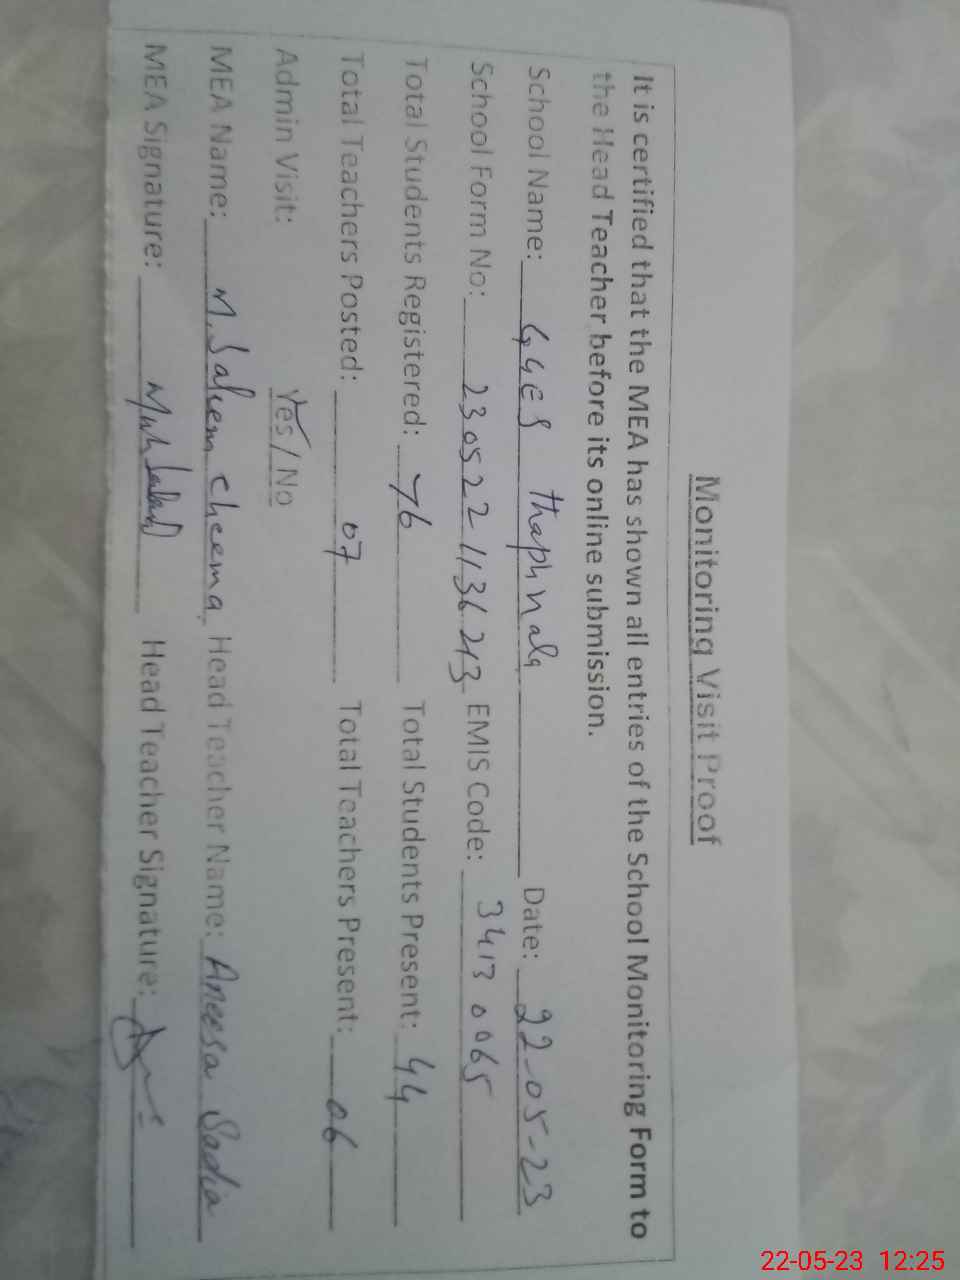 Monitoring Visit Proof
It is certified that the MEA has shown all entries of the School Monitoring Form to
the Head Teacher before its online submission.
School Name: GGES thaph nala Date: 22-05-23
School Form No: 2305221136243 EMIS Code: 34130065
Total Students Registered: 76 Total Students Present: 44
Total Teachers Posted: 07 Total Teachers Present: 06
Admin Visit: Yes / No
MEA Name: M. Saleem Cheema Head Teacher Name: Aneesa Sadia
MEA Signature: Head Teacher Signature:
22-05-23 12:25